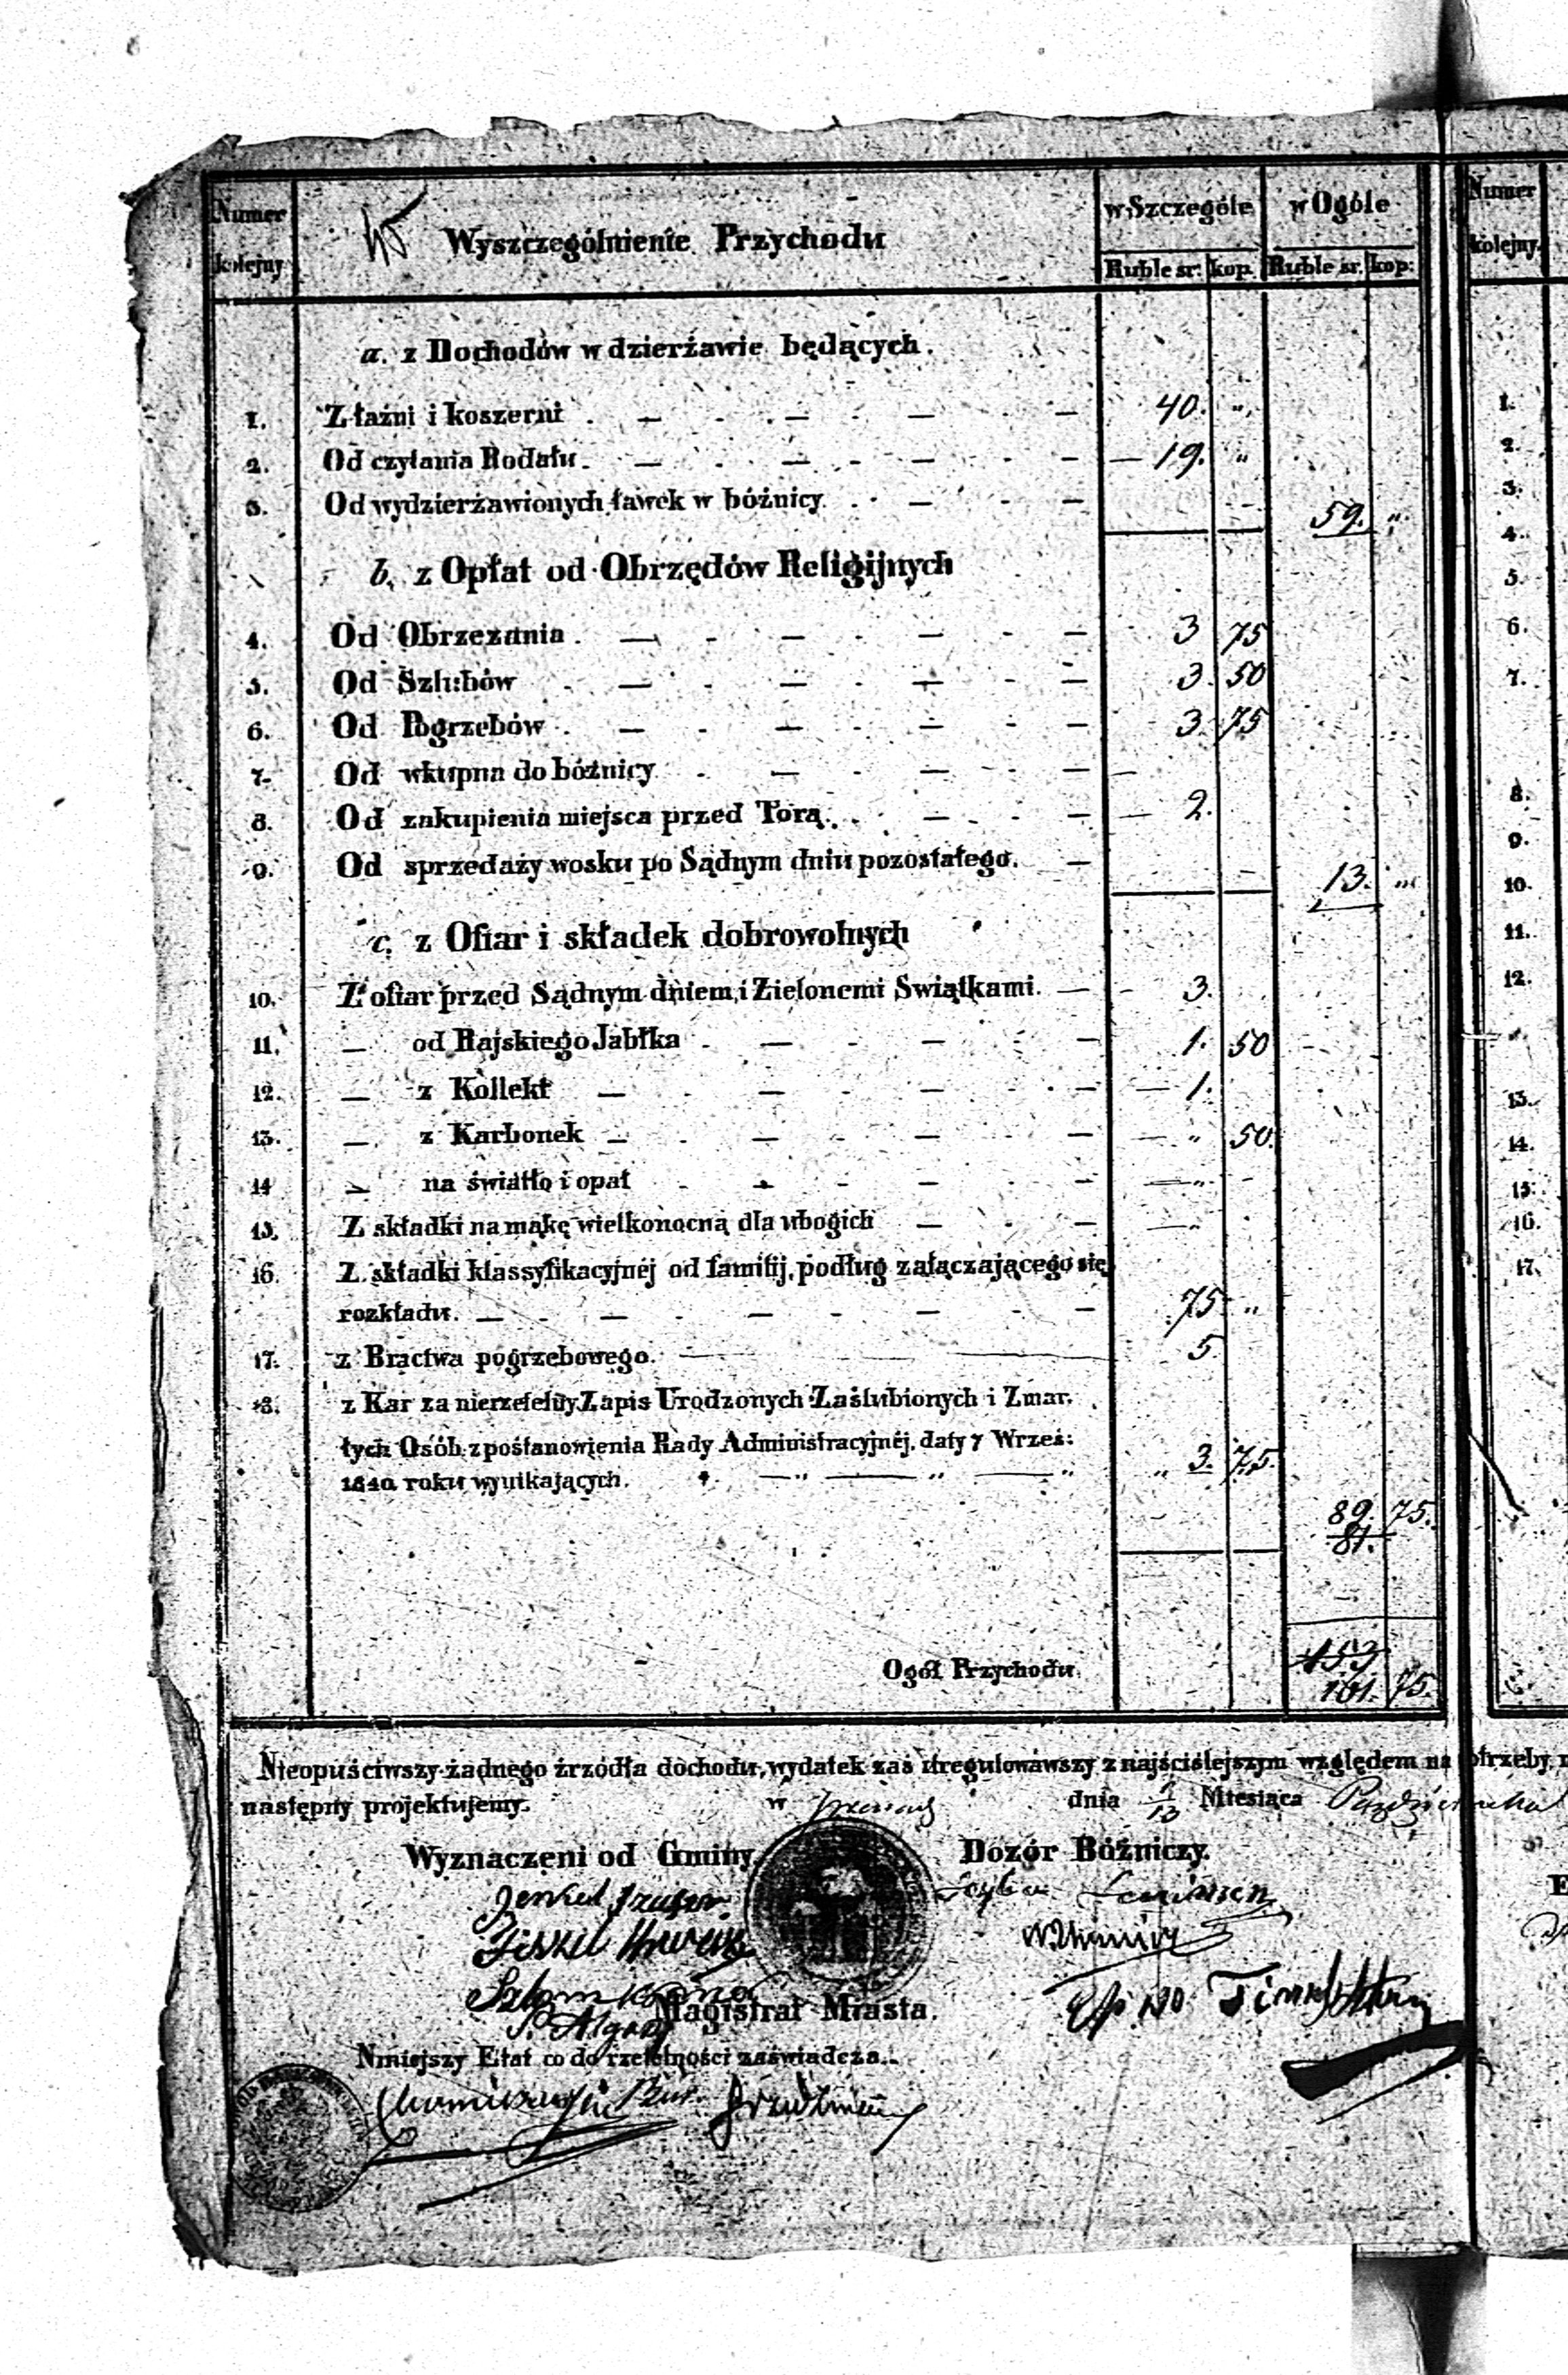 Numer kolejny
Wyszczególnienie Przychodu
w Szczególe
w Ogóle
Numer
kolejny
Ruble sr: kop. Ruble sr. kop:
a. z Dochodów w dzierżawie będących.
1. Z łaźni i koszerni . — . — — . — 40. „ 1.
2. Od czytania Rodału. — . — . — . — — 19. „ 2.
3. Od wydzierżawionych ławek w bóżnicy. . . — . — 3.
59. „ 4.
b. z Opłat od Obrzędów Religijnych 5.
4. Od Obrzezania . — . — . — . — 3 75 6.
5. Od Szlubów . — . — . — . — 3. 50 7.
6. Od Pogrzebów . — . — . — . — 3. 75
7. Od wkupna do bóżnicy . — . — . — —
8. Od zakupienia miejsca przed Torą. . . — . — — 2. 8.
9. Od sprzedaży wosku po Sądnym dniu pozostałego. — 9.
13. „ 10.
c. z Ofiar i składek dobrowolnych 11.
10. Z ofiar przed Sądnym dniem, i Zielonemi Swiątkami. — 3. 12.
11. — od Rajskiego Jabłka . — . — . — 1. 50
12. — z Kollekt — . — . — . — — 1.
13. — z Karbonek — . — . — . — — „ 50. 13.
14 — na światło i opał . — . — . — — „ 14.
15. Z składki na mąkę wielkonocną dla ubogich — . — — „ 15.
16.
16. Z składki klassyfikacyjnéj od familij, podług załączającego się 17.
rozkładu. — . — . — . — . — 75 „
17. z Bractwa pogrzebowego. — 5
18. z Kar za nierzetelny Zapis Urodzonych Zaślubionych i Zmar.
łych Osób z postanowienia Rady Administracyjnéj. daty 7 Wrześ:
1840 roku wynikających. — „ — „ — „ „ 3. 75.
89. 75.
81.
Ogół Przychodu.
153
161. 75.
Nieopuściwszy żadnego źrzódła dochodu, wydatek zaś uregulowawszy z najściślejszym względem na potrzeby,
następny projektujemy. w dnia 1/13 Miesiąca Października
Wyznaczeni od Gminy Dozór Bóżniczy.
Magistrat Miasta.
Niniejszy Etat co do rzetelności zaświadcza.